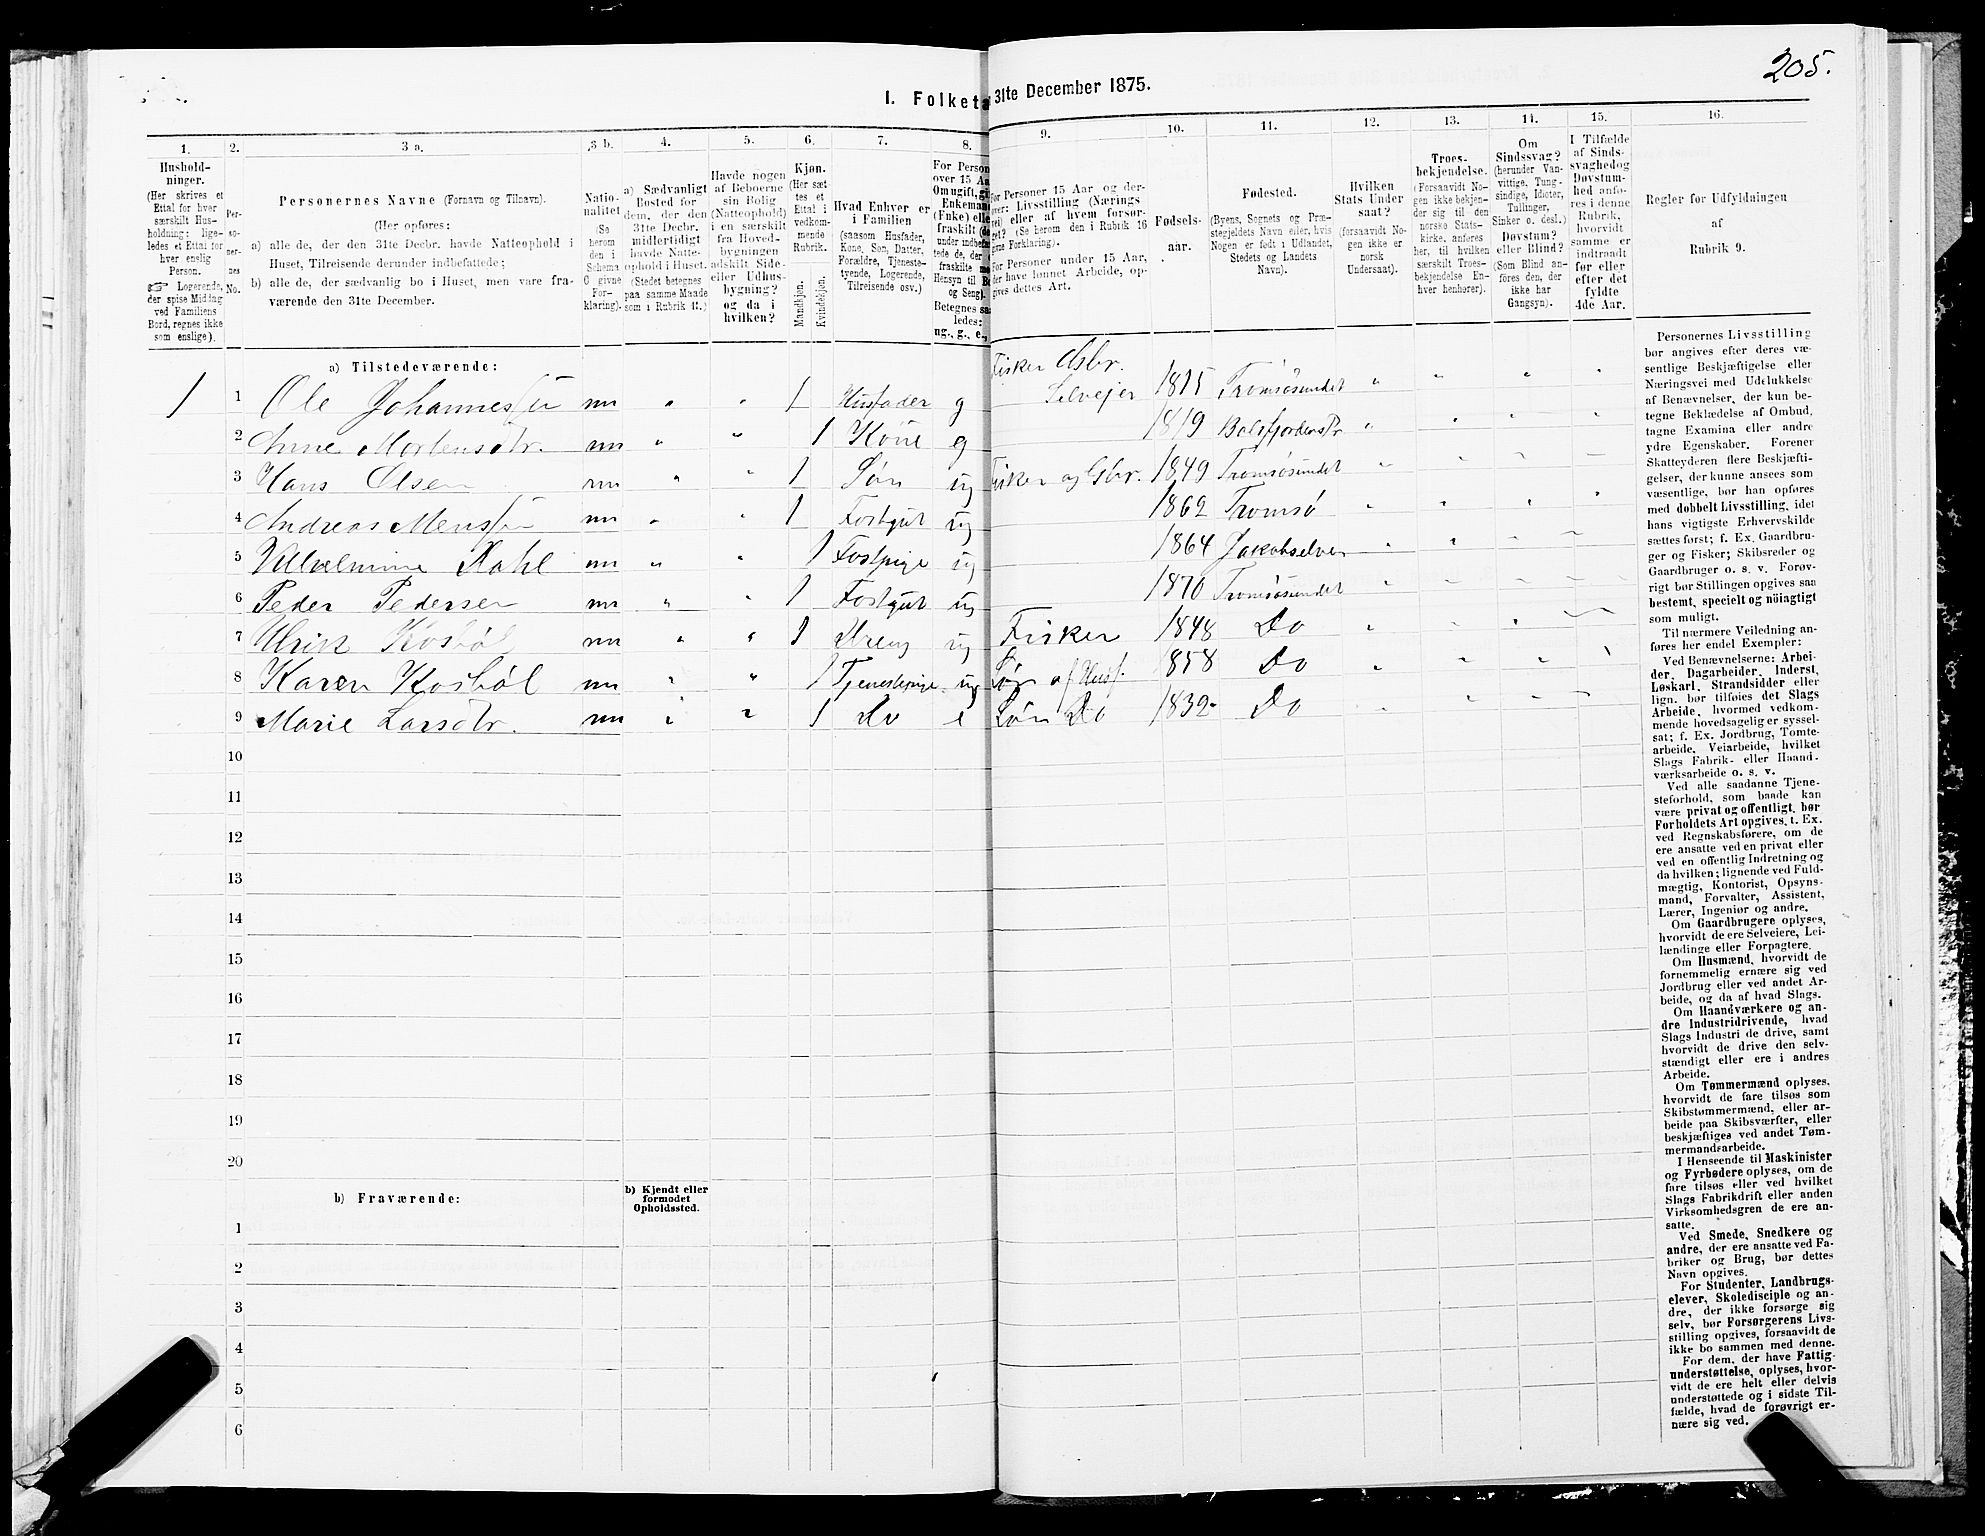 205.
I. Folketa 31te December 1875.
1. 2. 3 a. 3 b. 4. 5. 6. 7. 8. 9. 10. 11. 12. 13. 14. 15. 16.
Hushold-
ninger.
(Her skrives et
Ettal for hver
særskilt Hus-
holdning; lige-
ledes et Ettal for
hver enslig
Person.
☞ Logerende,
der spise Middag
ved Familiens
Bord, regnes ikke
som enslige).
Per-
so-
ner-
nes
No.
Personernes Navne (Fornavn og Tilnavn).
(Her opføres:
a) alle de, der den 31te Decbr. havde Natteophold i
Huset, Tilreisende derunder indbefattede;
b) alle de, der sædvanlig bo i Huset, men vare fra-
værende den 31te December.
Natio-
nalitet
(Se
herom
den i
Schema
6 givne
For-
klaring).
a) Sædvanligt
Bosted for
dem, der den
31te Decbr.
midlertidigt
havde Natte-
ophold i Huset.
(Stedet betegnes
paa samme Maade
som i Rubrik 11.)
Havde nogen
af Beboerne
sin Bolig
(Natteophold)
i en særskilt
fra Hoved-
bygningen
adskilt Side-
eller Udhus-
bygning?
og da i
hvilken?
Kjøn.
(Her sæt-
tes et
Ettal i
vedkom-
mende
Rubrik.
Mandkjøn.
Kvindekjøn.
Hvad Enhver er
i Familien
(saasom Husfader,
Kone, Søn, Datter,
Forældre, Tjeneste-
tyende, Logerende,
Tilreisende osv.)
For Person
over 15 Aa
Om ugift, gi
Enkeman
(Enke) elle
fraskilt (de
under indbefat
tede de, der e
fraskilte me
Hensyn til Bo
og Seng).
Betegnes saa
ledes:
ug., g., e.,
For Personer 15 Aar og der-
over: Livsstilling (Nærings
vei) eller af hvem forsør-
get? (Se herom den i Rubrik 16
givne Forklaring).
For Personer under 15 Aar,
der have lønnet Arbeide, op-
gives dettes Art.
Fødsels-
aar.
Fødested.
(Byens, Sognets og Præ-
stegjeldets Navn eller, hvis
Nogen er født i Udlandet,
Stedets og Landets
Navn).
Hvilken
Stats Under
saat?
(forsaavidt No-
gen ikke er
norsk
Undersaat).
Troes-
bekjendelse.
(Forsaavidt No-
gen ikke bekjen-
der sig til den
norske Stats-
kirke, anføres
her, til hvilken
særskilt Troes-
bekjendelse En-
hver henhører).
Om
Sindssvag?
(herunder Van-
vittige, Tung-
sindige, Idioter,
Tullinger,
Sinker o. desl.)
Døvstum?
eller Blind?
(Som Blind an-
føres den, der
ikke har
Gangsyn).
I Tilfælde
af Sinds-
svaghed og
Døvstum-
hed anfø-
res i denne
Rubrik,
hvorvidt
samme er
indtraadt
før eller
efter det
fyldte
4de Aar.
Regler for Udfyldningen
af
Rubrik 9.
a) Tilstedeværende:
1 1 Ole Johannessen nn " " 1 Husfader g Fisker Gbr. Selvejer 1815 Tromsøsundet " " " "
2 Anne Mortensdtr. nn " " 1 Kone g 1819 Balsfjorden "
3 Hans Olsen nn " " 1 Søn ug Fisker og Gbr. 1849 Tromsøsundet
4 Andreas nn " " 1 Fostgut ug 1862 Tromsø
5 Vilhelmine Dahl nn " " 1 Fostpige ug 1864 Jakobselven
6 Peder Pedersen nn " " 1 Fostgut ug 1870 Tromsøsundet
7 Ulrik Kosbøl nn " " 1 Dreng ug Fisker 1848 Do
8 Karen Kosbøl nn " " 1 Tjenestepige ug Løn af Husf. 1858 Do
9 Marie Larsdtr. nn " " 1 Do e Løn Do 1832 Do
10
11
12
13
14
15
16
17
18
19
20
b) Fraværende:
b) Kjendt eller
formodet
Opholdssted.
1
2
3
4
5
6
Personernes Livsstilling
bør angives efter deres væ-
sentlige Beskjæftigelse eller
Næringsvei med Udelukkelse
af Benævnelser, der kun be-
tegne Beklædelse af Ombud,
tagne Examina eller andre
ydre Egenskaber. Forener
Skatteyderen flere Beskjæfti-
gelser, der kunne ansees som
væsentlige, bør han opføres
med dobbelt Livsstilling, idet
hans vigtigste Erhvervskilde
sættes først; f. Ex. Gaardbru-
ger og Fisker; Skibsreder og
Gaardbruger o. s. v. Forøv-
rigt bør Stillingen opgives saa
bestemt, specielt og nöiagtigt
som muligt.
Til nærmere Veiledning an-
føres her endel Exempler:
Ved Benævnelserne: Arbei-
der, Dagarbeider, Inderst,
Løskarl, Strandsidder eller
lign. bør tilføies det Slags
Arbeide, hvormed vedkom-
mende hovedsagelig er syssel-
sat; f. Ex. Jordbrug, Tomte-
arbeide, Veiarbeide, hvilket
Slags Fabrik- eller Haand-
værksarbeide o. s. v.
Ved alle saadanne Tjene-
steforhold, som baade kan
være privat og offentligt, bør
Forholdets Art opgives, t. Ex.
ved Regnskabsførere, om de
ere ansatte ved en privat eller
ved en offentlig Indretning og
da hvilken; lignende ved Fuld-
mægtig, Kontorist, Opsyns-
mand, Forvalter, Assistent,
Lærer, Ingeniør og andre.
Om Gaardbrugere oplyses,
hvorvidt de ere Selveiere, Lei-
lændinge eller Forpagtere.
Om Husmænd, hvorvidt de
fornemmelig ernære sig ved
Jordbrug eller ved andet Ar-
beide, og da af hvad Slags.
Om Haandværkere og an-
dre Industridrivende, hvad
Slags Industri de drive, samt
hvorvidt de drive den selv-
stændigt eller ere i andres
Arbeide.
Om Tømmermænd oplyses,
hvorvidt de fare tilsøs som
Skibstømmermænd, eller ar-
beide paa Skibsværfter, eller
beskjæftiges ved andet Tøm-
mermandsarbeide.
I Henseende til Maskinister
og Fyrbødere oplyses, om de
fare tilsøs eller ved hvilket
Slags Fabrikdrift eller anden
Virksomhedsgren de ere an-
satte.
Ved Smede, Snedkere og
andre, der ere ansatte ved Fa-
briker og Brug, bør dettes
Navn opgives.
For Studenter, Landbrugs-
elever, Skoledisciple og an-
dre, der ikke forsørge sig
selv, bør Forsørgerens Livs-
stilling opgives, forsaavidt de
ikke bo sammen med denne.
For dem, der have Fattig-
understøttelse, oplyses, hvor-
vidt de ere helt eller delvis
understøttede og i sidste Til-
fælde, hvad de forøvrigt er-
nære sig ved.